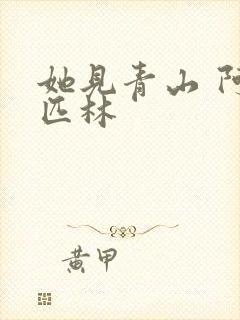 她見青山 阿
匹林
黃甲